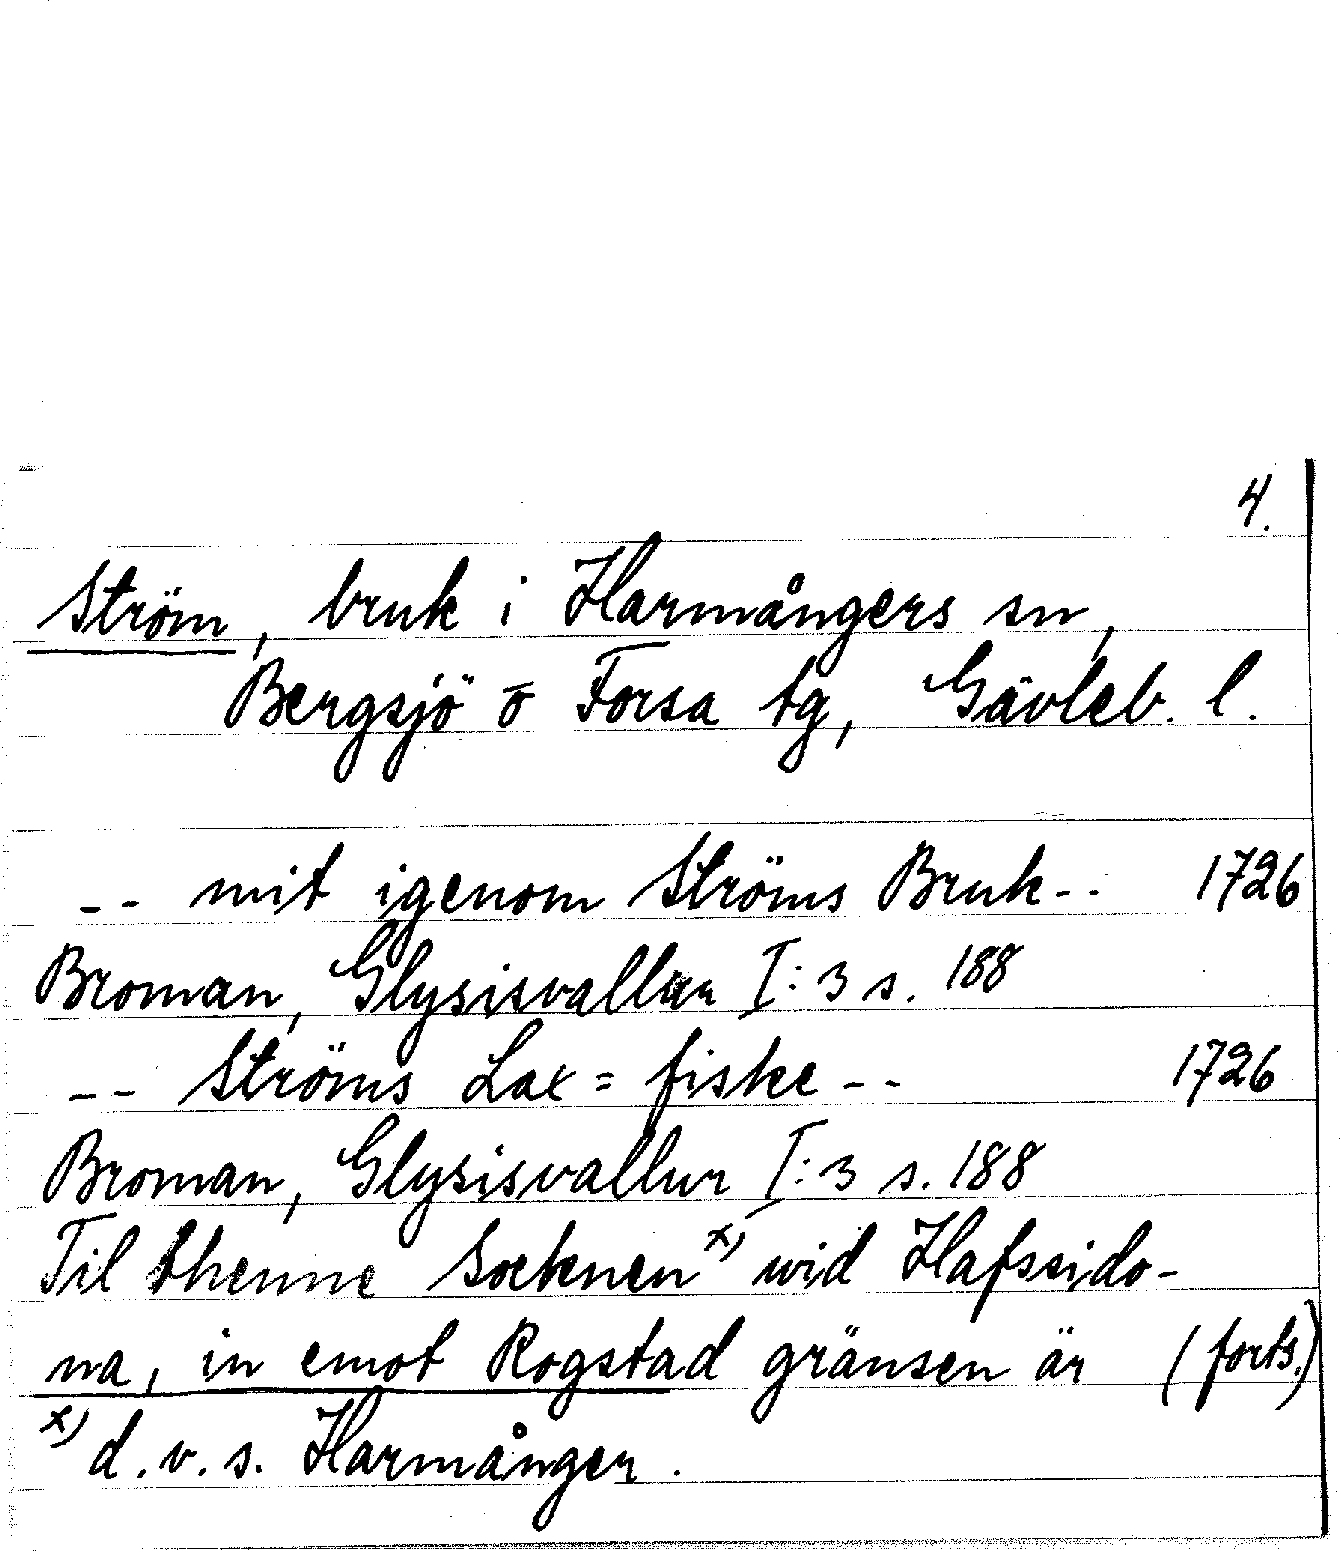 4.
Ström, bruk i Harmångers sn,
Bergsjö o Forsa tg, Gävleb. l.
-- mit igenom Ströms Bruk-- 1726
Broman, Glysisvallur I:3 s. 188
-- Ströms Lax=fiske -- 1726
Broman, Glysisvallur I:3 s. 188
Til thenne Socknen x) wid Hafssido-
na, in emot Rogstad gränsen är (forts.)
x) d.v.s. Harmånger.